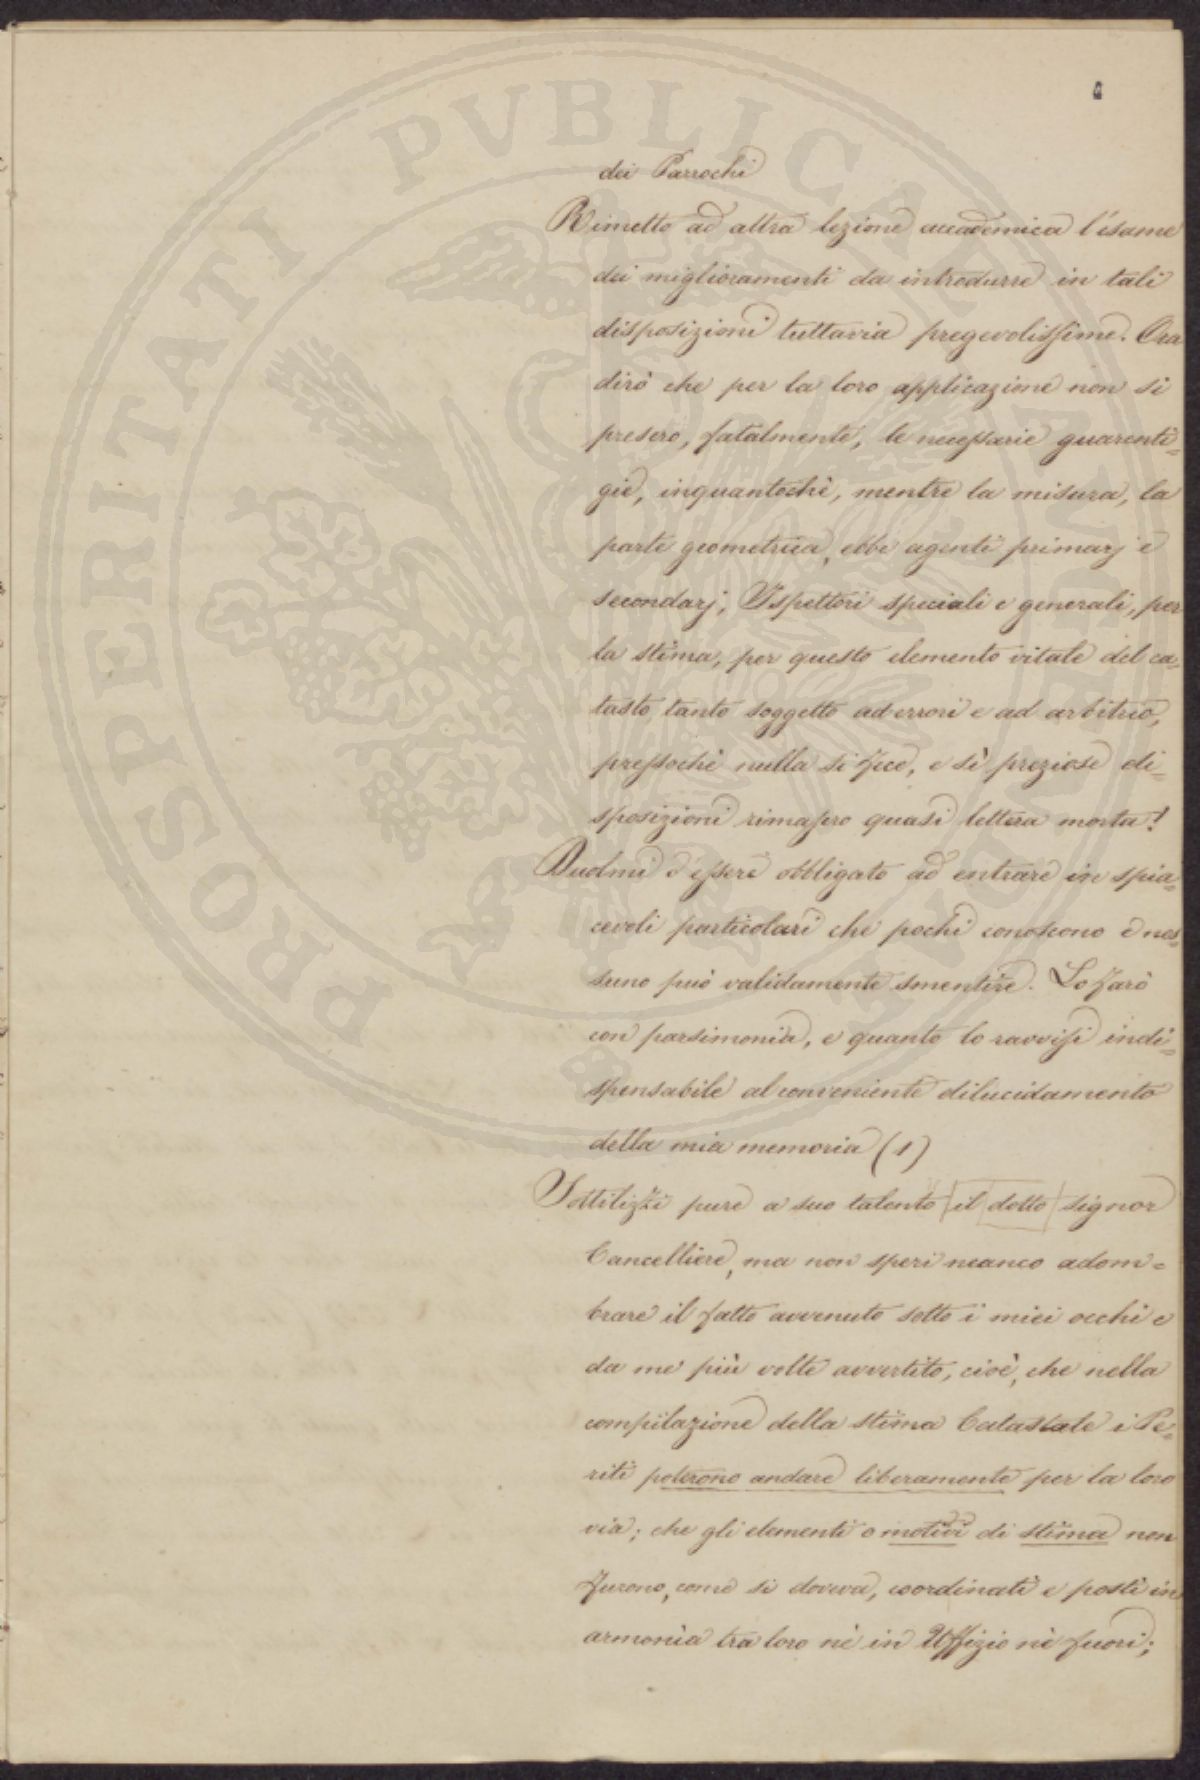 dei Parrochi
Rimetto ad altra lezione accademica l'esame
dei miglioramenti da introdurre in tali
disposizioni tuttavia pregevolissime. Ora
dirò che per la loro applicazione non si
presero, fatalmente, le necessarie guarenti=
gie, inquantochè, mentre la misura, la
parte geometrica, ebbe agenti primarj e
secondarj, Ispettori speciali e generali, per
la stima, per questo elemento vitale del ca=
tasto tanto soggetto ad errori e ad arbitrio,
pressochè nulla si fece, e sì preziose di=
sposizioni rimasero quasi lettera morta!
Duolmi d'essere obbligato ad entrare in spia=
cevoli particolari che pochi conoscono e nes=
suno può validamente smentire. Lo farò
con parsimonia, e quanto lo ravvisi indi=
spensabile al conveniente dilucidamento
della mia memoria (1)
Sottilizzi pure a suo talento il dotto signor
Cancelliere, ma non speri neanco adom=
brare il fatto avvenuto sotto i miei occhi e
da me più volte avvertito, cioè, che nella
compilazione della stima Catastale i Pe=
riti poterono andare liberamente per la loro
via; che gli elementi o motivi di stima non
furono, come si doveva, coordinati e posti in
armonia tra loro nè in Uffizio nè fuori;
PROSPERITATI PVBLICAE